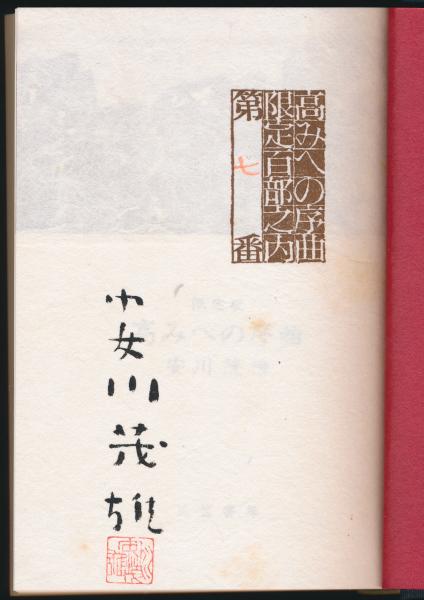 高みへの序曲
限定百部之内
第七番
安川茂雄
高みへの序曲
安川茂雄